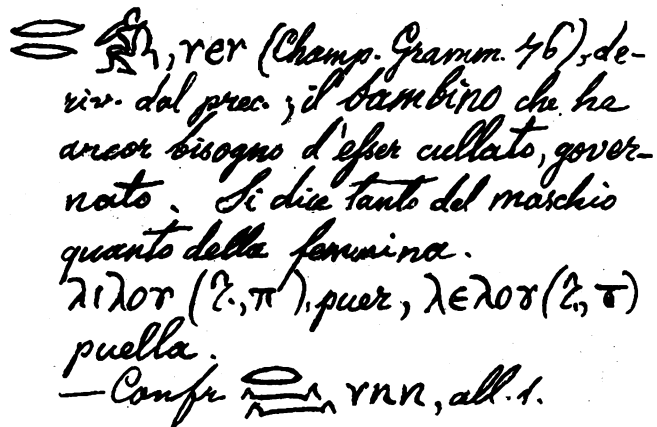 𓂋𓂋 𓀔, rer (Champ. Gramm. 76), de-
riv. dal prec.; il bambino che ha
ancor bisogno d'eſser cullato, gover-
nato. Si dice tanto del maschio
quanto della femmina.
ⲗⲓⲗⲟⲩ (ϩ., ⲡ), puer, ⲗⲉⲗⲟⲩ (ϩ, ⲧ)
puella.
— Confr. 𓂋𓈖𓈖, rnn, all. 1.